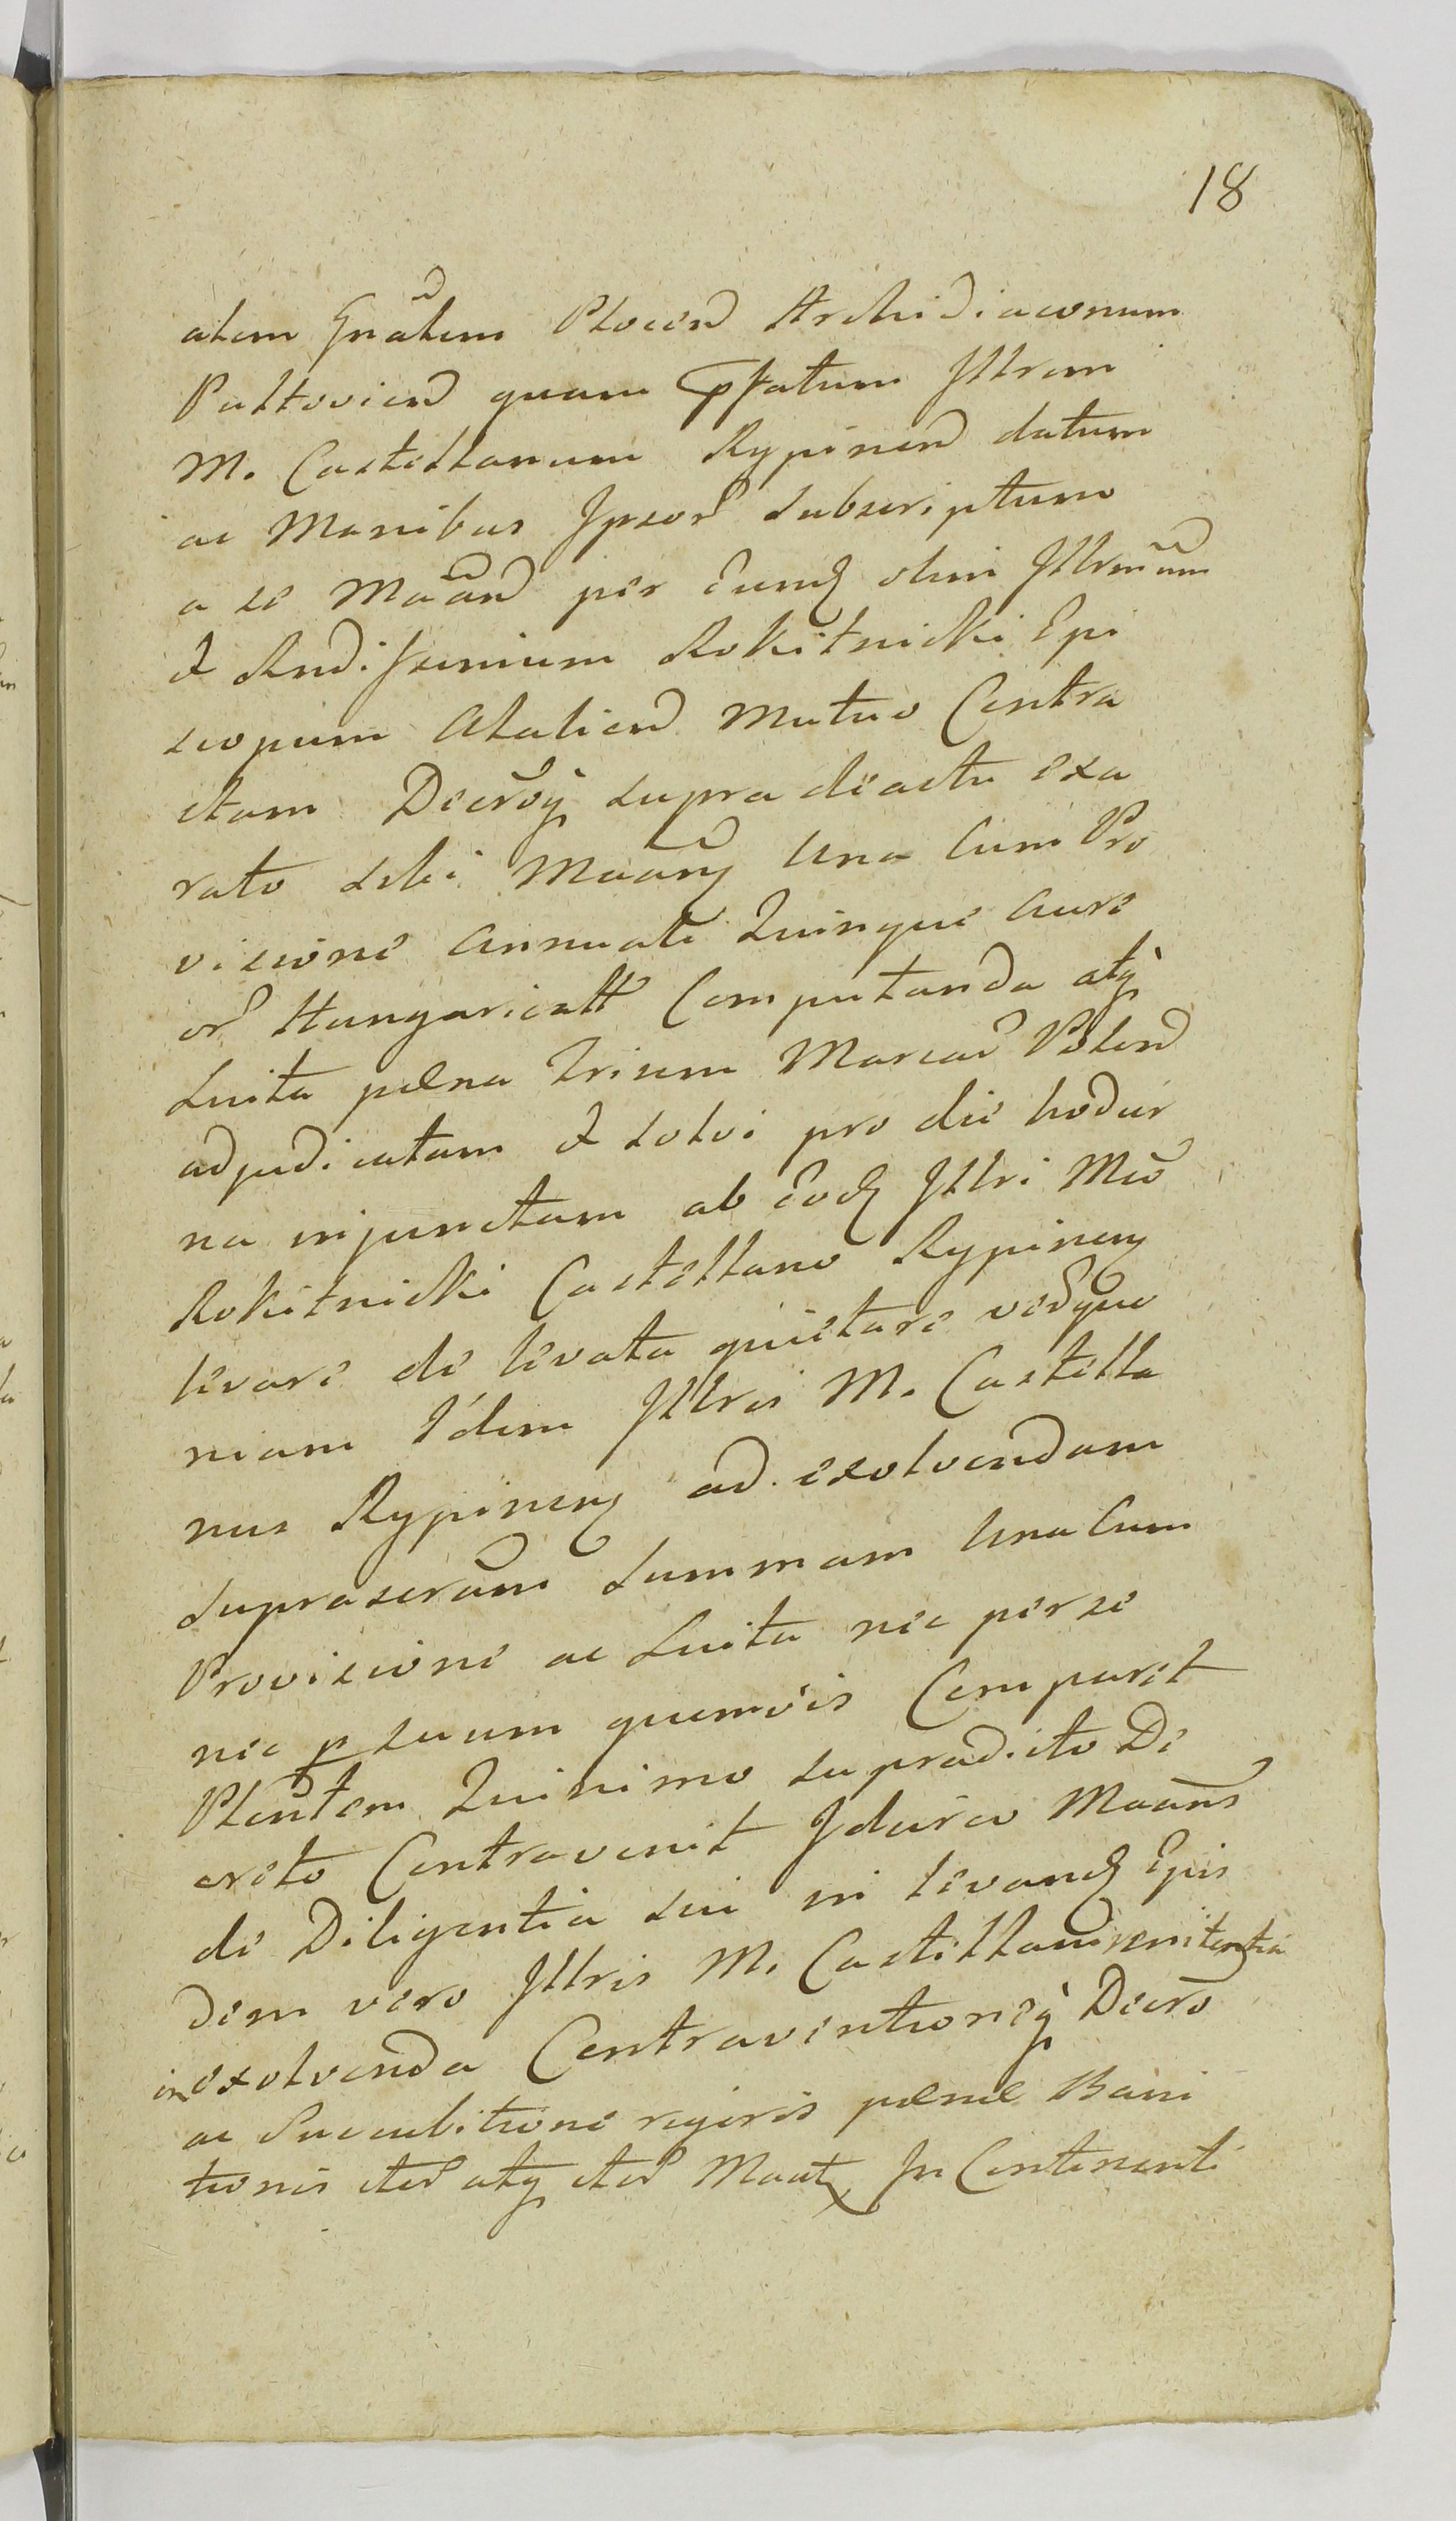 18
alem Gnãlem Plocen Archidiaconum
Pultovien quam pfatum Illrem
M. Castellanum Rypinen datum
ac Manibus Ipsor Subscriptum
a se Maãn per Eund olim Illrmũm
& Rndissimum Rokitnicki Epi
scopum Atalien Mutuo Contra
ctam Decrõq supra de actu exa
rato sibi Maãn una cum Pro
visione Annuali Quinque Aure
or Hungaricall Computanda atq
Luita pæna Trium Marcar Polon
adjudicatam & solvi pro die hodier
na injunctam ab Eod Illri Mco
Rokitnicki Castellano Rypinen
levare de levata quietare vedque
niam Idem Illris M. Castella
nus Rypinen ad exolvendam
Suprascrām Summam Una Cum
Provisione ac Luita nec per se
nec p suum quemvis Comparet
Plentem Quinimo supradicto De
creto Contravenit Idcirco Maans
de Diligentia sui in levand Ejus
dem vero Illris M. Castellani renitentia
in exolvenda Contraventioneq Decro
ac Succubitione rigoris pænæ Bani
tionis iter atq iter Maat In Continenti